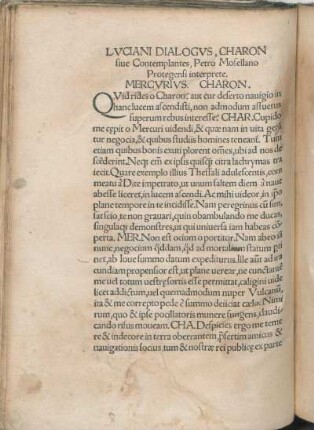 LVCIANI DIALOGVS, CHARON
siue Contemplantes, Petro Mosellano
Protegensi interprete.
MERCVRIVS. CHARON.
QVid rides o Charon: aut cur deserto nauigio in
hanc lucem ascendisti, non admodum assuetus
superum rebus interesse? CHAR. Cupido
me cepit o Mercuri uidendi, & quæ nam in uita gerā
tur negocia, & quibus studiis homines teneātur. Tum
etiam quibus bonis exuti plorent oēs, ubi ad nos de
scēderint. Neq; em̄ ex ipsis quisq̄ citra lachrymas tra
iecit. Quare exemplo illius Thessali adulescentis, com
meatu à Dite impetrato, ut unum saltem diem à naui
abesse liceret, in lucem ascendi. Ac mihi uideor, in ipso
plane tempore in te incidisse. Nam peregrinū cū sim,
sat scio, te non grauari, quin obambulando me ducas,
singulaq; demonstres, ut qui uniuersa iam habeas cō
perta. MER. Non est ocium o portitor. Nam abeo
nunc, negocium
ret, ab Ioue summo datum expediturus. Ille aūt ad ira
cundiam propensior est, ut plane uerear, ne cunctatū
me uel totum uestræ sortis esse permittat, caligini uide
licet addictum, uel quemadmodum nuper Vulcanū,
ita & me correpto pede è summo deiiciat cœlo: Nimi
rum, quo & ipse pocillatoris munere fungens, claudi
cando risus moueam. CHA. Despicies ergo me teme
re & indecore in terra oberrantem, p̄sertim amicus &
nauigationis socius, tum & nostræ rei publicę ex parte